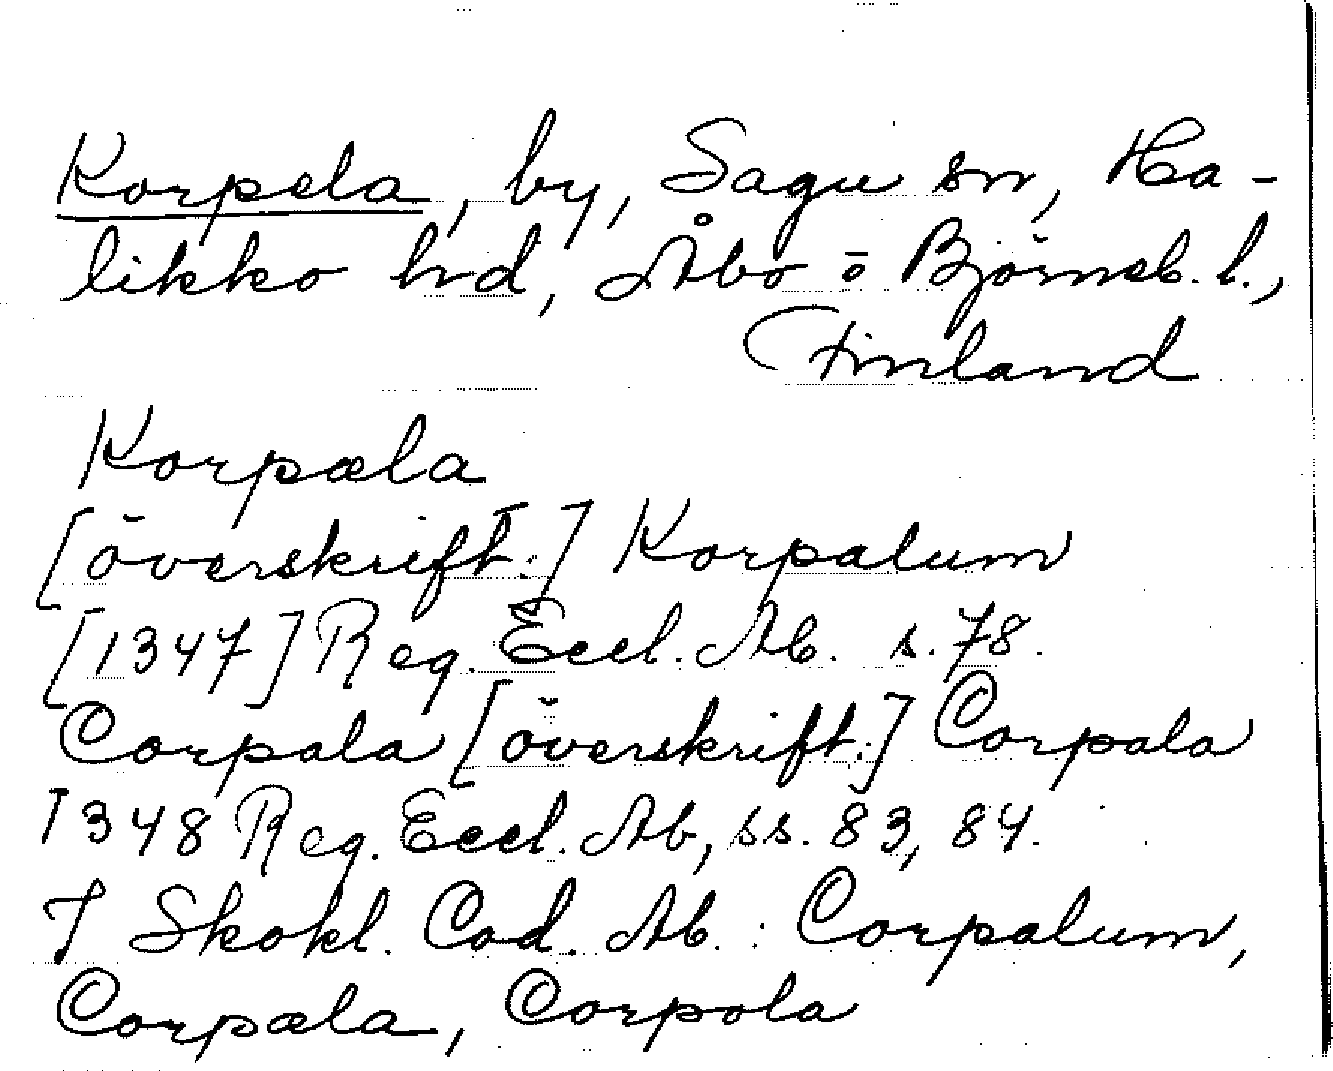 Korpela, by, Sagu sn, Ha-
likko hd, Åbo o Björneb. l.,
Finland
Korpæla
[överskrift:] Korpalum
[1347] Reg. Eccl. Ab. s. 78.
Corpala [överskrift:] Corpala
1348 Reg. Eccl. Ab, ss. 83, 84.
I Skokl. Cod. Ab. : Corpalum,
Corpæla, Corpola